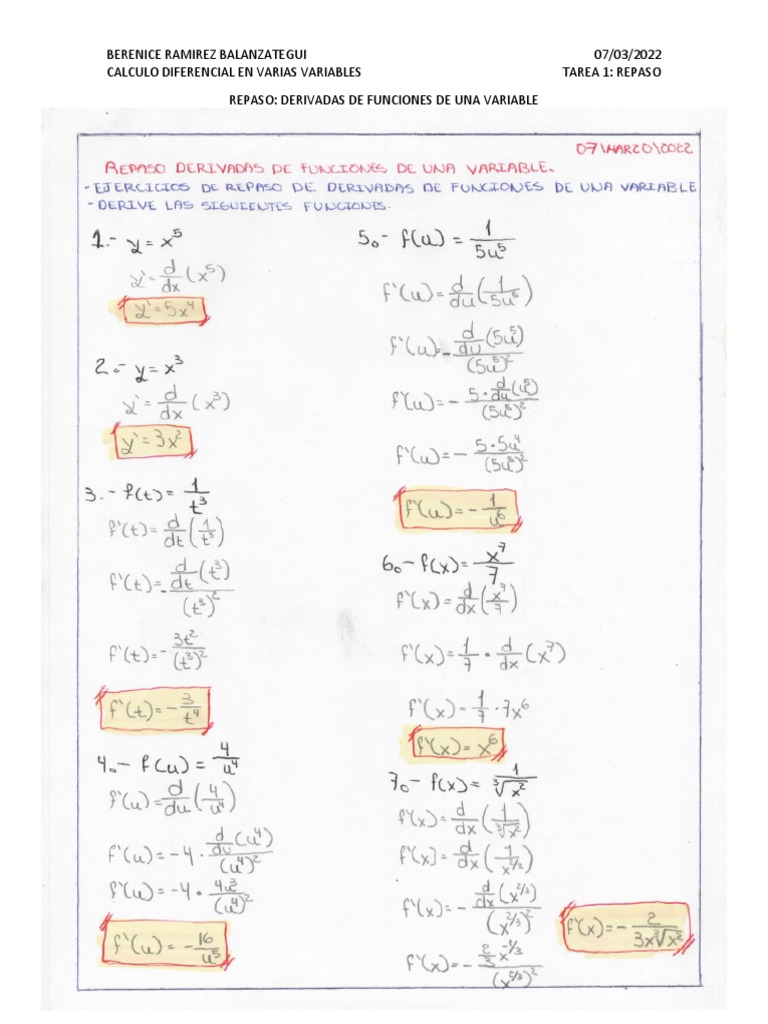 BERENICE RAMIREZ BALANZATEGUI 07/03/2022
CALCULO DIFERENCIAL EN VARIAS VARIABLES TAREA 1: REPASO
REPASO: DERIVADAS DE FUNCIONES DE UNA VARIABLE
07\MARZO\2022
REPASO DERIVADAS DE FUNCIONES DE UNA VARIABLE.
-EJERCICIOS DE REPASO DE DERIVADAS DE FUNCIONES DE UNA VARIABLE
-DERIVE LAS SIGUIENTES FUNCIONES.
1.- y = x^5
y' = d/dx (x^5)
y' = 5x^4
2.- y = x^3
y' = d/dx (x^3)
y' = 3x^2
3.- f(t) = 1/t^3
f'(t) = d/dt (1/t^3)
f'(t) = - d/dt (t^3)/(t^3)^2
f'(t) = - 3t^2/(t^3)^2
f'(t) = - 3/t^4
4.- f(u) = 4/u^4
f'(u) = d/du (4/u^4)
f'(u) = -4 · d/du (u^4)/(u^4)^2
f'(u) = -4 · 4u^3/(u^4)^2
f'(u) = - 16/u^5
5.- f(u) = 1/5u^5
f'(u) = d/du (1/5u^5)
f'(u) = - d/du (5u^5)/(5u^5)^2
f'(u) = - 5 · d/du (u^5)/(5u^5)^2
f'(u) = - 5·5u^4/(5u^5)^2
f'(u) = - 1/u^6
6.- f(x) = x^7/7
f'(x) = d/dx (x^7/7)
f'(x) = 1/7 · d/dx (x^7)
f'(x) = 1/7 · 7x^6
f'(x) = x^6
7.- f(x) = 1/∛x^2
f'(x) = d/dx (1/∛x^2)
f'(x) = d/dx (1/x^2/3)
f'(x) = - d/dx (x^2/3)/(x^2/3)^2
f'(x) = - 2/3 x^-1/3/(x^2/3)^2
f'(x) = - 2/3x∛x^2